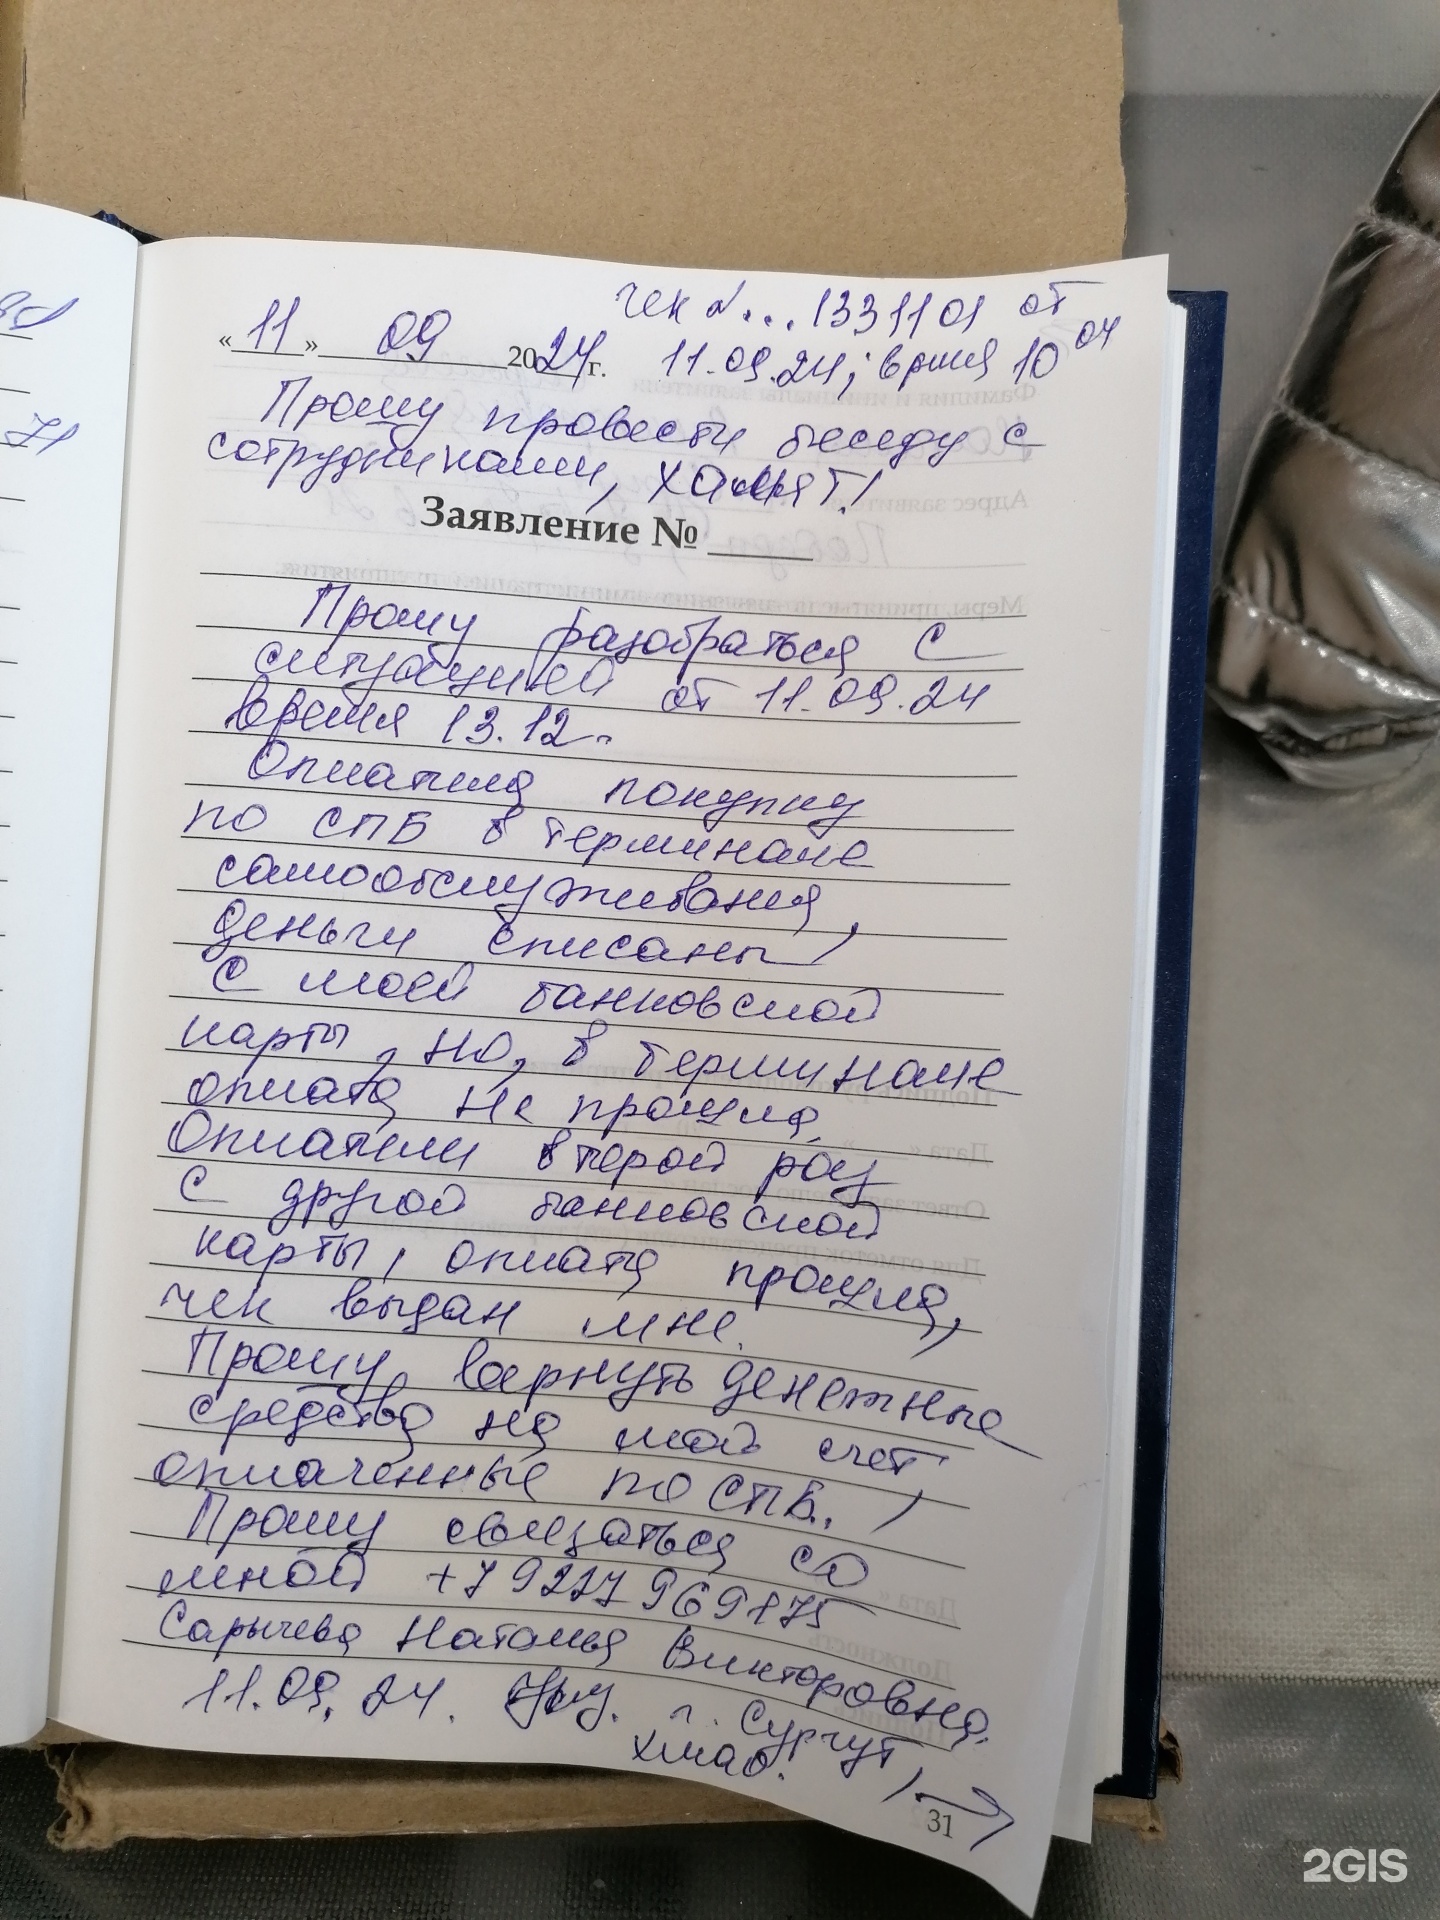 чек №...1331101 от
«11» 09 2024 г. 11.09.24, время 10 04
Прошу провести беседу с
сотрудниками, хамят!
Заявление №
Прошу разобраться с
ситуацией от 11.09.24
время 13.12.
Оплатила покупку
по СПБ в терминале
самообслуживания,
деньги списаны
с моей банковской
карты, но, в терминале
оплата не прошла.
Оплатили второй раз
с другой банковской
карты, оплата прошла,
чек выдан мне.
Прошу вернуть денежные
средства на мой счет,
оплаченные по СПБ.
Прошу связаться со
мной
Сарычева Наталья Викторовна.
11.09.24. г. Сургут,
ХМАО.
31
2GIS